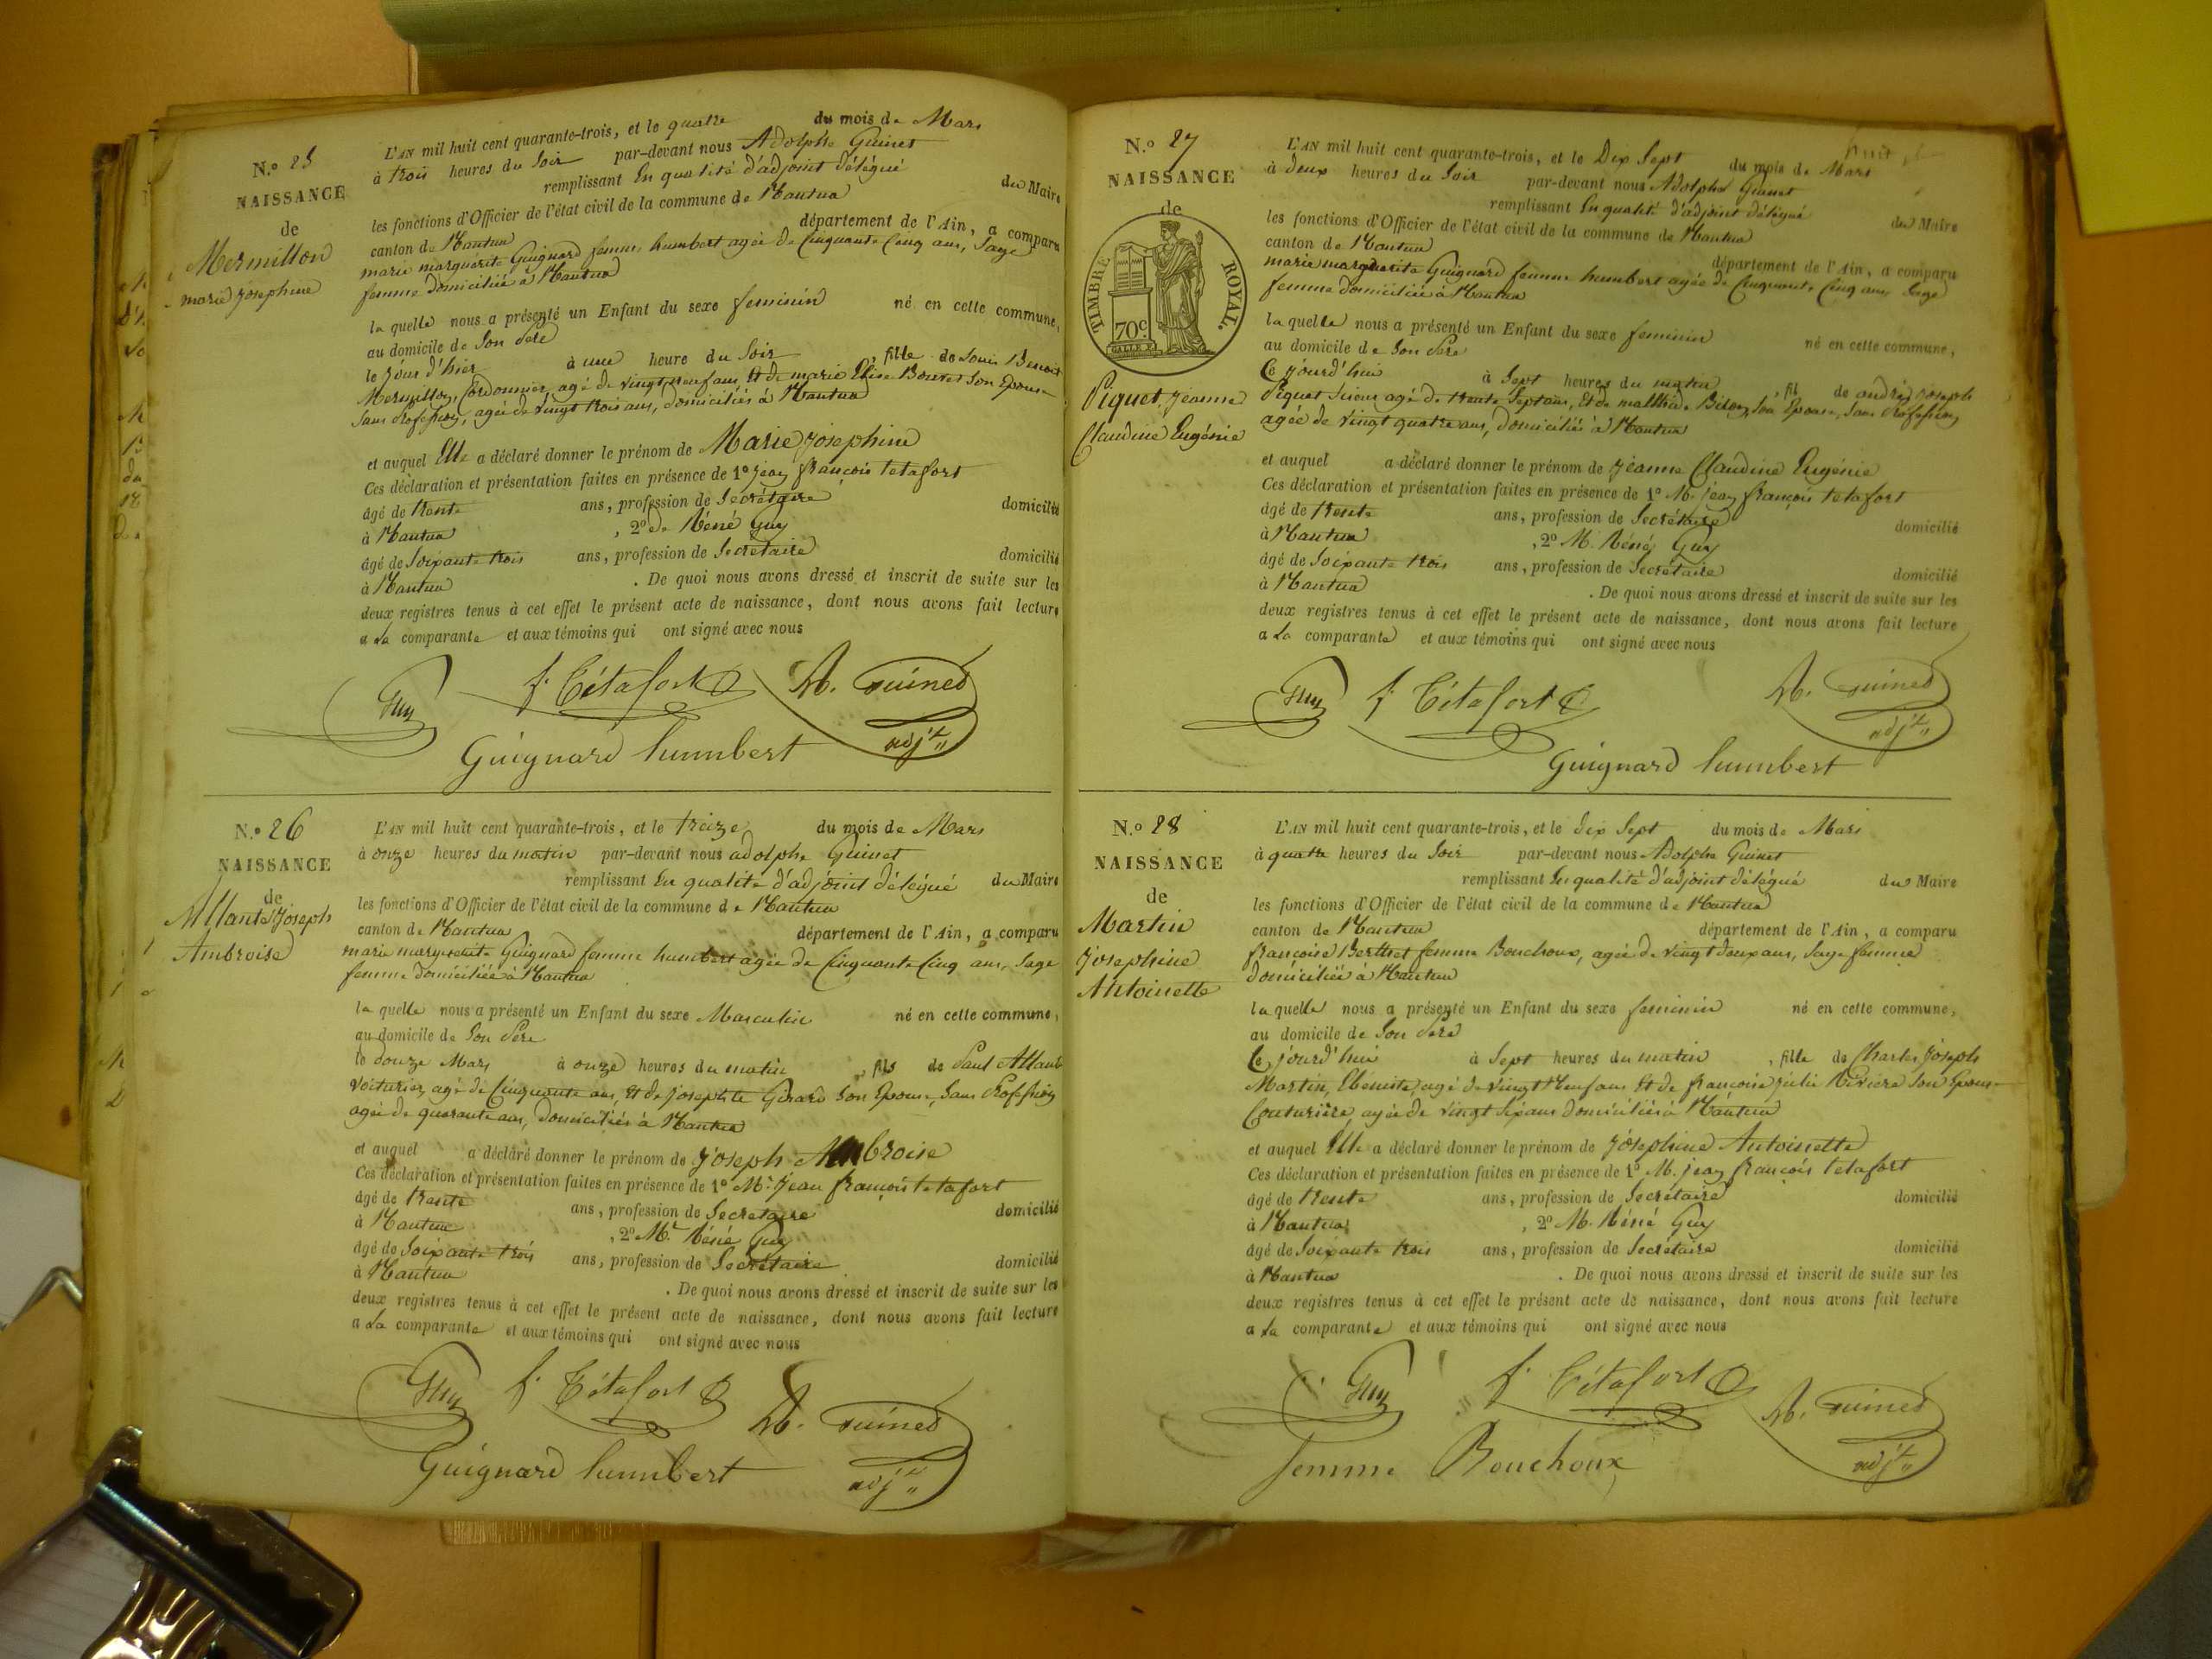 N.º 25
NAISSANCE
de
Mermillon
marie josephine
L'AN mil huit cent quarante-trois, et le quatre du mois de Mars
à trois heures du Soir par-devant nous Adolphe Guinet
remplissant En qualité d'adjoint délégué du Maire
les fonctions d'Officier de l'état civil de la commune de Nantua
canton de Nantua département de l'Ain, a comparu
marie marguerite Guignard femme humbert agée de Cinquante Cinq ans, Sage
femme domiciliée à Nantua
la quelle nous a présenté un Enfant du sexe feminin né en cette commune,
au domicile de Son Père
le jour d'hier à une heure du Soir, fille de Louis Benoit
Mermillon, Cordonnier, agé de vingt neuf ans, Et de marie Elise Bouvet Son Epouse
Sans Profession, agée de vingt trois ans, domiciliés à Nantua
et auquel Elle a déclaré donner le prénom de Marie josephine
Ces déclaration et présentation faites en présence de 1º jean françois tetafort
âgé de trente ans, profession de Secrétaire domicilié
à Nantua, 2º de Réné Guy
âgé de Soixante trois ans, profession de Secrétaire domicilié
à Nantua. De quoi nous avons dressé et inscrit de suite sur les
deux registres tenus à cet effet le présent acte de naissance, dont nous avons fait lecture
a La comparante et aux témoins qui ont signé avec nous
Guy f. Tétafort A. Guinet
adjt
Guignard humbert
N.º 26
NAISSANCE
de
Allante Joseph
Ambroise
L'AN mil huit cent quarante-trois, et le treize du mois de Mars
à onze heures du matin par-devant nous adolphe Guinet
remplissant En qualité d'adjoint délégué du Maire
les fonctions d'Officier de l'état civil de la commune de Nantua
canton de Nantua département de l'Ain, a comparu
marie marguerite Guignard femme humbert agée de Cinquante Cinq ans, Sage
femme domiciliée à Nantua
la quelle nous a présenté un Enfant du sexe Masculin né en cette commune,
au domicile de Son Père
le douze Mars à onze heures du matin, fils de Paul Allante
voiturier, agé de Cinquante ans, Et de josephte Girard Son Epouse, Sans Profession
agée de quarante ans, domiciliés à Nantua
et auquel a déclaré donner le prénom de joseph Ambroise
Ces déclaration et présentation faites en présence de 1º Mr. Jean françois tetafort
âgé de trente ans, profession de Secretaire domicilié
à Nantua, 2º Mr Réné Guy
âgé de Soixante trois ans, profession de Secrétaire domicilié
à Nantua. De quoi nous avons dressé et inscrit de suite sur les
deux registres tenus à cet effet le présent acte de naissance, dont nous avons fait lecture
a La comparante et aux témoins qui ont signé avec nous
Guy f. Tétafort A. Guinet
Guignard humbert adjt
N.º 27
NAISSANCE
de
TIMBRE ROYAL.
70c
Piquet, Jeanne
Claudine Eugénie
L'AN mil huit cent quarante-trois, et le Dix Sept du mois de Mars
à deux heures du Soir par-devant nous Adolphe Guinet
remplissant En qualité d'adjoint délégué du Maire
les fonctions d'Officier de l'état civil de la commune de Nantua
canton de Nantua département de l'Ain, a comparu
marie marguerite Guignard femme humbert agée de Cinquante Cinq ans Sage
femme domiciliée à Nantua
la quelle nous a présenté un Enfant du sexe feminin né en cette commune,
au domicile de Son Père
Ce jourd'hui à Sept heures du matin, fil de andré joseph
Piquet Scieur agé de trente Sept ans, Et de mathide Son Epouse, Sans Profession,
agée de vingt quatre ans, domiciliés à Nantua
et auquel a déclaré donner le prénom de jeanne Claudine Eugénie
Ces déclaration et présentation faites en présence de 1º M. jean françois tetafort
âgé de trente ans, profession de Secrétaire domicilié
à Nantua, 2º M. Réné Guy
âgé de Soixante trois ans, profession de Secrétaire domicilié
à Nantua. De quoi nous avons dressé et inscrit de suite sur les
deux registres tenus à cet effet le présent acte de naissance, dont nous avons fait lecture
a La comparante et aux témoins qui ont signé avec nous
Guy f Tétafort A. Guinet
adjt
Guignard humbert
N.º 28
NAISSANCE
de
Martin
Josephine
Antoinette
L'AN mil huit cent quarante-trois, et le dix Sept du mois de Mars
à quatre heures du Soir par-devant nous Adolphe Guinet
remplissant En qualité d'adjoint délégué du Maire
les fonctions d'Officier de l'état civil de la commune de Nantua
canton de Nantua département de l'Ain, a comparu
françoise Berthet femme Bouchoux, agée de vingt deux ans, Sage femme
domiciliée à Nantua
la quelle nous a présenté un Enfant du sexe feminin né en cette commune,
au domicile de Son Père
Ce jourd'hui à Sept heures du matin, fille de Charles Joseph
Martin, Ebéniste, agé de vingt Neuf ans Et de françoise julie Rivière Son Epouse
Couturière, agée de vingt Six ans domiciliés à Nantua
et auquel Elle a déclaré donner le prénom de joséphine Antoinette
Ces déclaration et présentation faites en présence de 1º M. jean françois tetafort
âgé de trente ans, profession de Secrétaire domicilié
à Nantua, 2º M. Réné Guy
âgé de Soixante trois ans, profession de Secrétaire domicilié
à Nantua. De quoi nous avons dressé et inscrit de suite sur les
deux registres tenus à cet effet le présent acte de naissance, dont nous avons fait lecture
a La comparante et aux témoins qui ont signé avec nous
Guy f. Tétafort A. Guinet
femme Bouchoux adjt